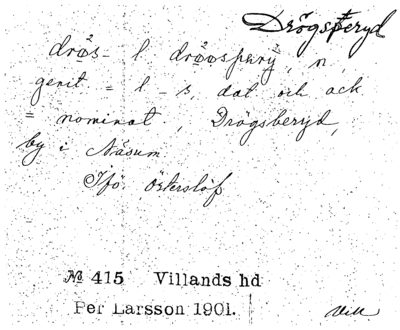 Drögsperyd
drøs- l. drøøspærÿ, n,
genit = l - s, dat och ack
= nominat, Drögsberyd,
by i Näsum
Ifö. Österslöf
№ 415 Villands hd
Per Larsson 1901.
Vill.